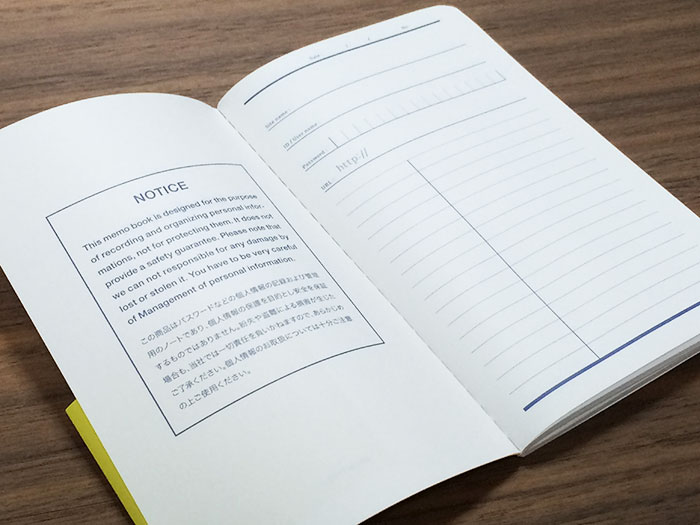 NOTICE
This memo book is designed for the purpose
of recording and organizing personal infor-
mations, not for protecting them. It does not
provide a safety guarantee. Please note that
we can not responsible for any damage by
lost or stolen it. You have to be very careful
of Management of personal information.
この商品はパスワードなどの個人情報の記録および管理
用のノートであり、個人情報の保護を目的とし安全を保証
するものではありません。紛失や盗難による損害が生じた
場合も、当社では一切責任を負いかねますので、あらかじめ
ご了承ください。個人情報のお取扱については十分ご注意
の上ご使用ください。
Date / / No.
Site name
ID / User name
Password
URL http://